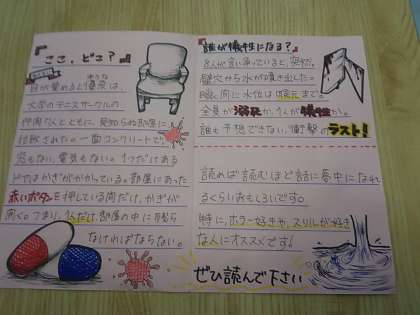 『ここ、どこ?』
目が覚めると優奈は、
大学のテニスサークルの
仲間6人とともに、見知らぬ部屋に
拉致された。一面コンクリートで、
窓もない。電気もない。1つだけある
ドアはかぎがかかっている。部屋にあった
赤いボタンを押している間だけ、かぎが
開く。つまり、1人だけ部屋の中に残ら
なければならない。
『誰が犠牲になる?』
と人が言い争っていると、突然、
壁穴から水が噴き出した。
瞬く間に水位は喉元まで。
全員が溺死か、1人が犠牲か。
誰も予想できない衝撃のラスト!
読めば読むほど話に夢中になれ
るくらいおもしろいです。
特に、ホラー好きや、スリルが好き
な人にオススメです!
ぜひ読んで下さい